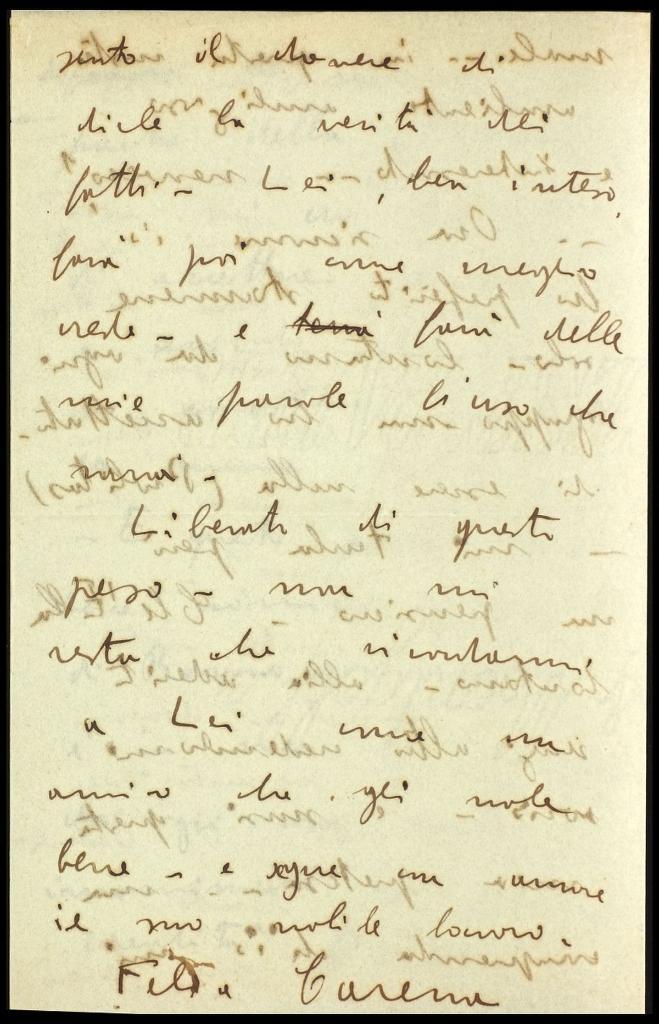 sento il dovere di
dirle la verità dei
fatti - Lei, ben inteso,
farà poi come meglio
crede - e farà delle
mie parole l'uso che
vorrà -
Liberato di questo
peso - non mi
resta che ricordarmi
a Lei come un
amico che gli vuole
bene - e segue con amore
il suo nobile lavoro.
Felice Carena